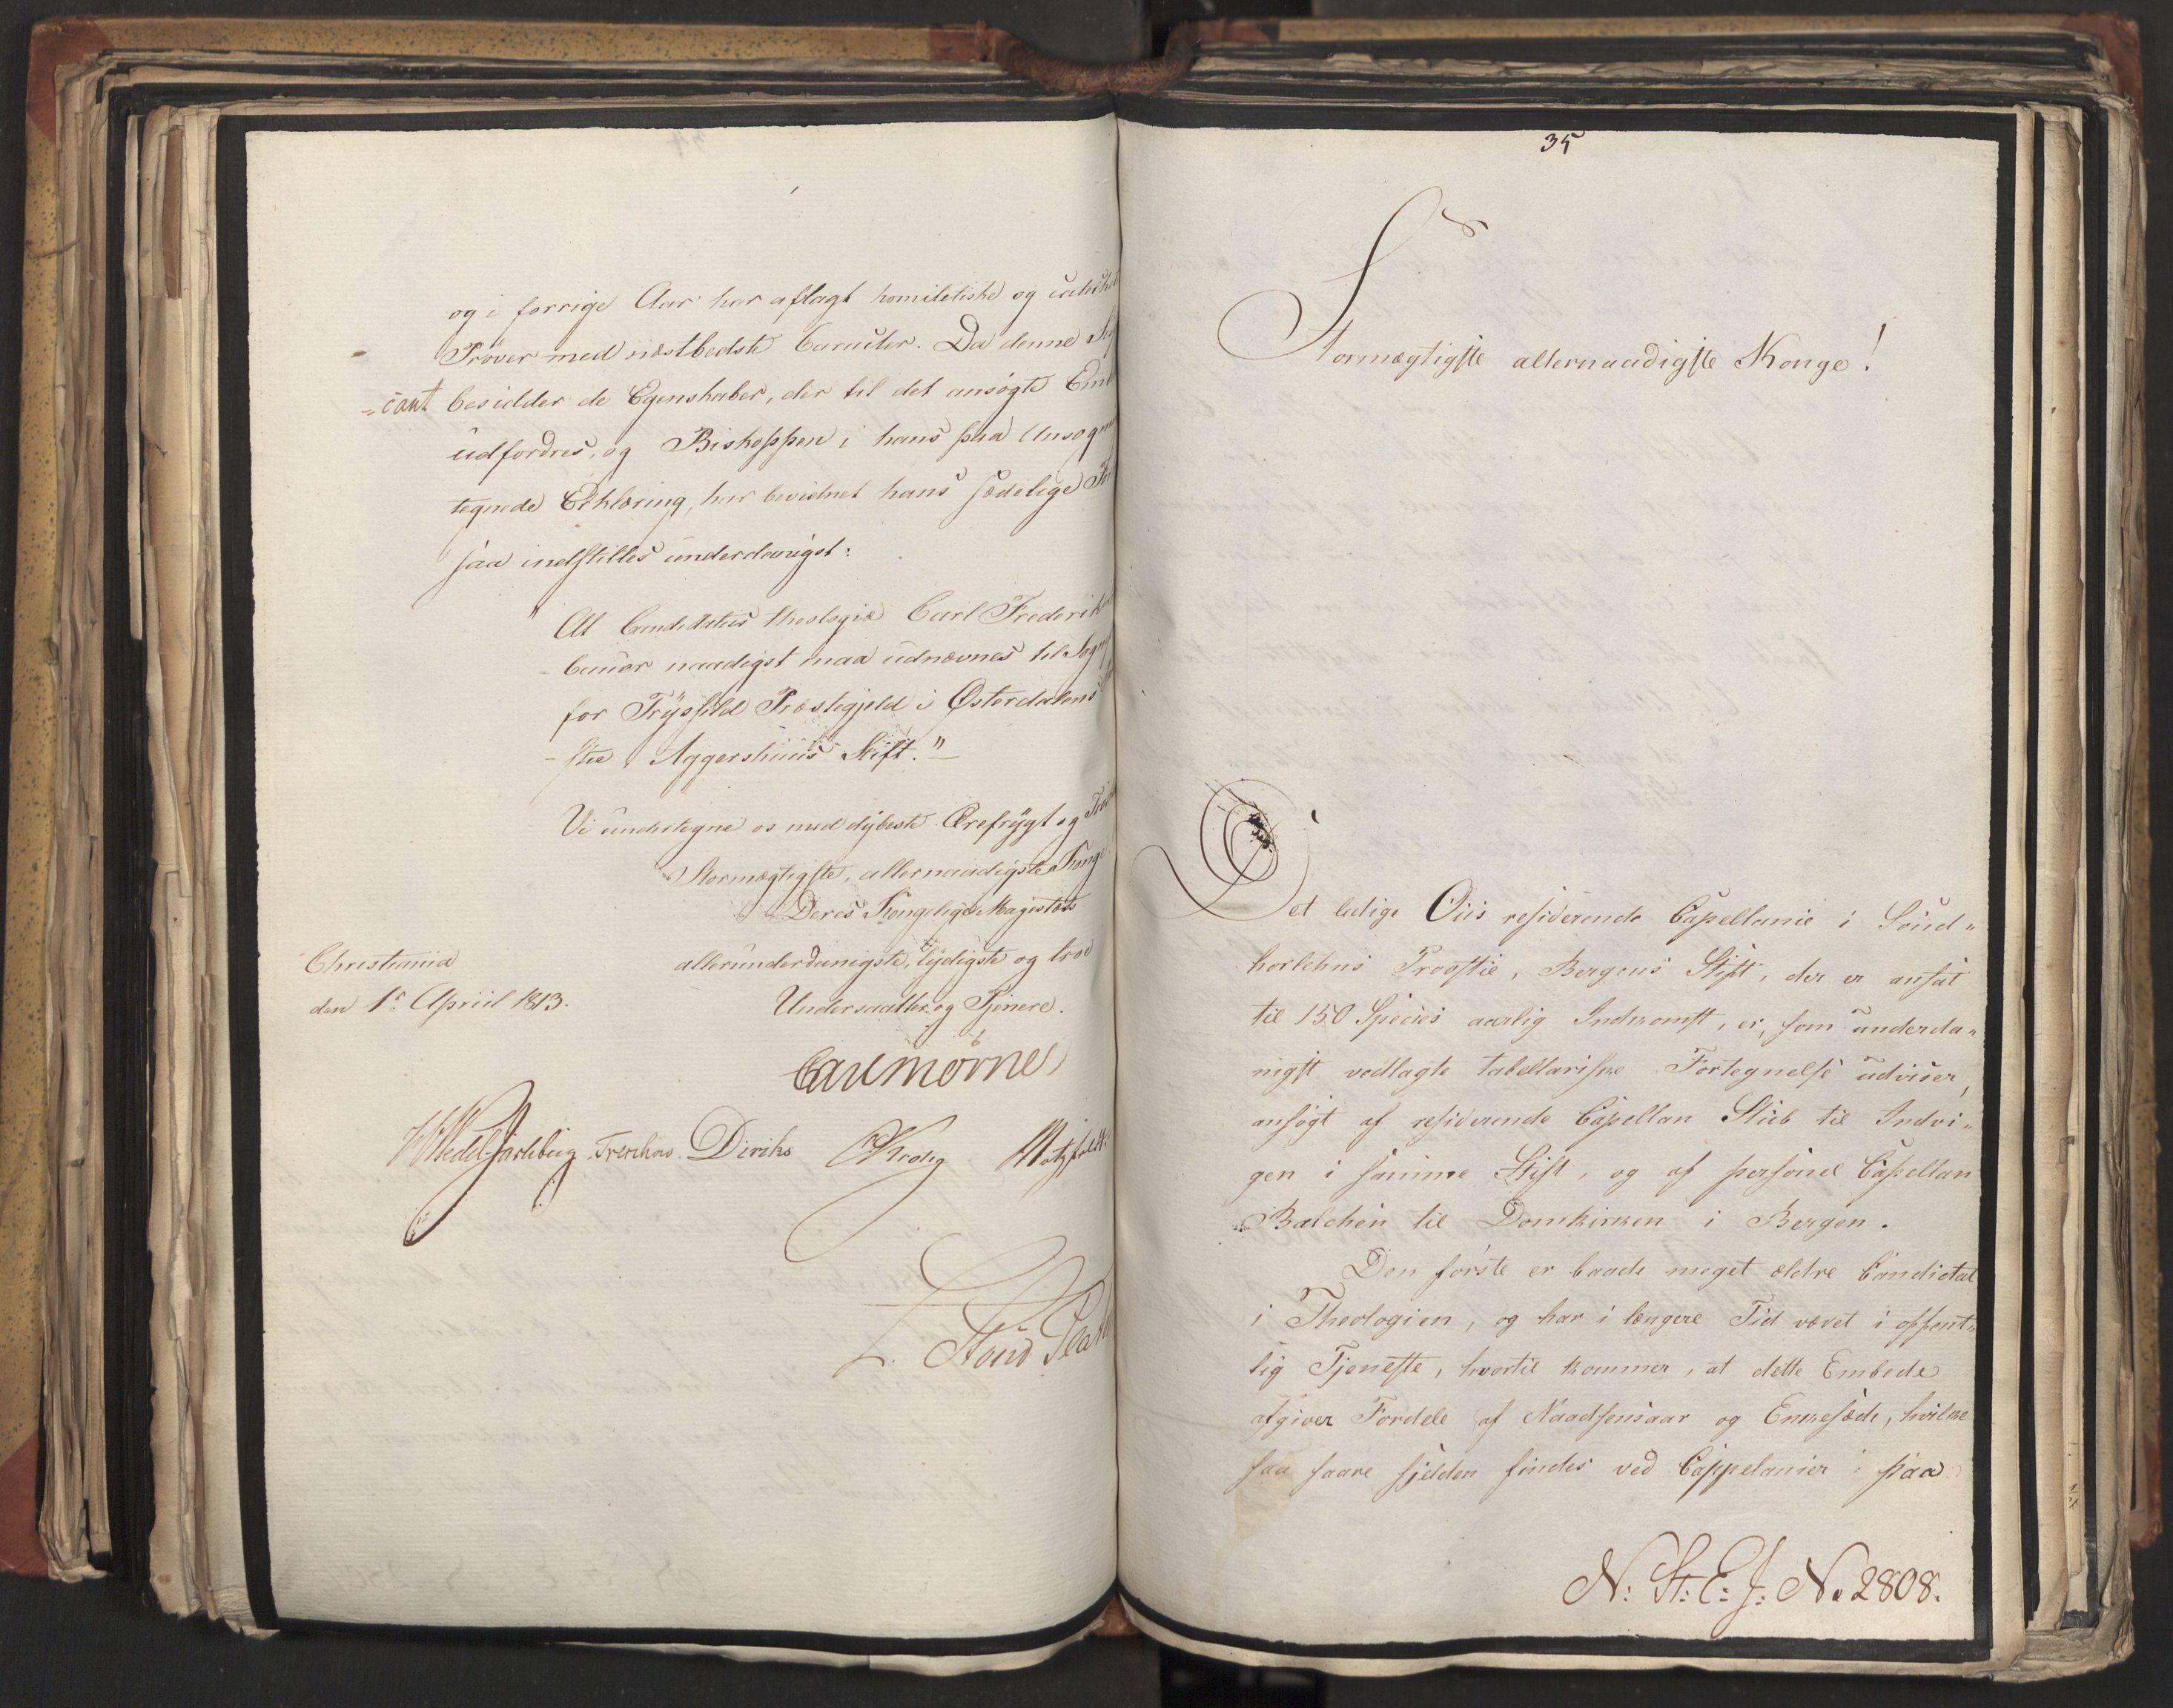 og i forrige Aar har aflagt homiletiske og
Prøver med næstbedste Caracter. Da denne
-cant besidder de Egenskaber, der til det ansøgte Emb
udfordres, og Biskoppen i hans paa Ansøgn
tegnede Erklæring, har bevidnet hans sædelige
saa indstilles underdanigst:
"At Candidatus theologiæ Carl Frederik
naadigst maa udnævnes til Sogn
for Trysild Præstegjeld i Østerdalens
-stie Aggershuus Stift."
Vi undertegne os med dybeste Ærefrygt og
Stormægtigste, allernaadigste Konge
Deres Kongelige Majestæts
allerunderdanigste, lydigste og troe
Undersaatter og Tjenere.
Christiania
den 1e Apriil 1813.
Carl Mörner
Wedel Jarlsberg Treschow Diriks CKrohg Motzfeldt
L. Stoud Plat
35
Stormægtigste allernaadigste Konge!
Det ledige Ous residerende Capellanie i Sönd„
horlehns Proostie, Bergens Stift, der er ansat
til 150 Species aarlig Indkomst, er, som underda„
nigst vedlagte tabellariske Fortegnelse udviser,
ansøgt af residerende Capellan Stub til Indvi„
gen i samme Stift, og af personel Capellan
Balchen til Domkirken i Bergen.
Den første er baade meget ældre Candidat
i Theologien, og har i længere Tid været i offent„
lig Tjeneste, hvortil kommer, at dette Embede
afgiver Fordele af Naadsensaar og Enkesæde, hvilke
saa saare sjelden findes ved Cappelanier i paa
N: St: E: J: No 2808.